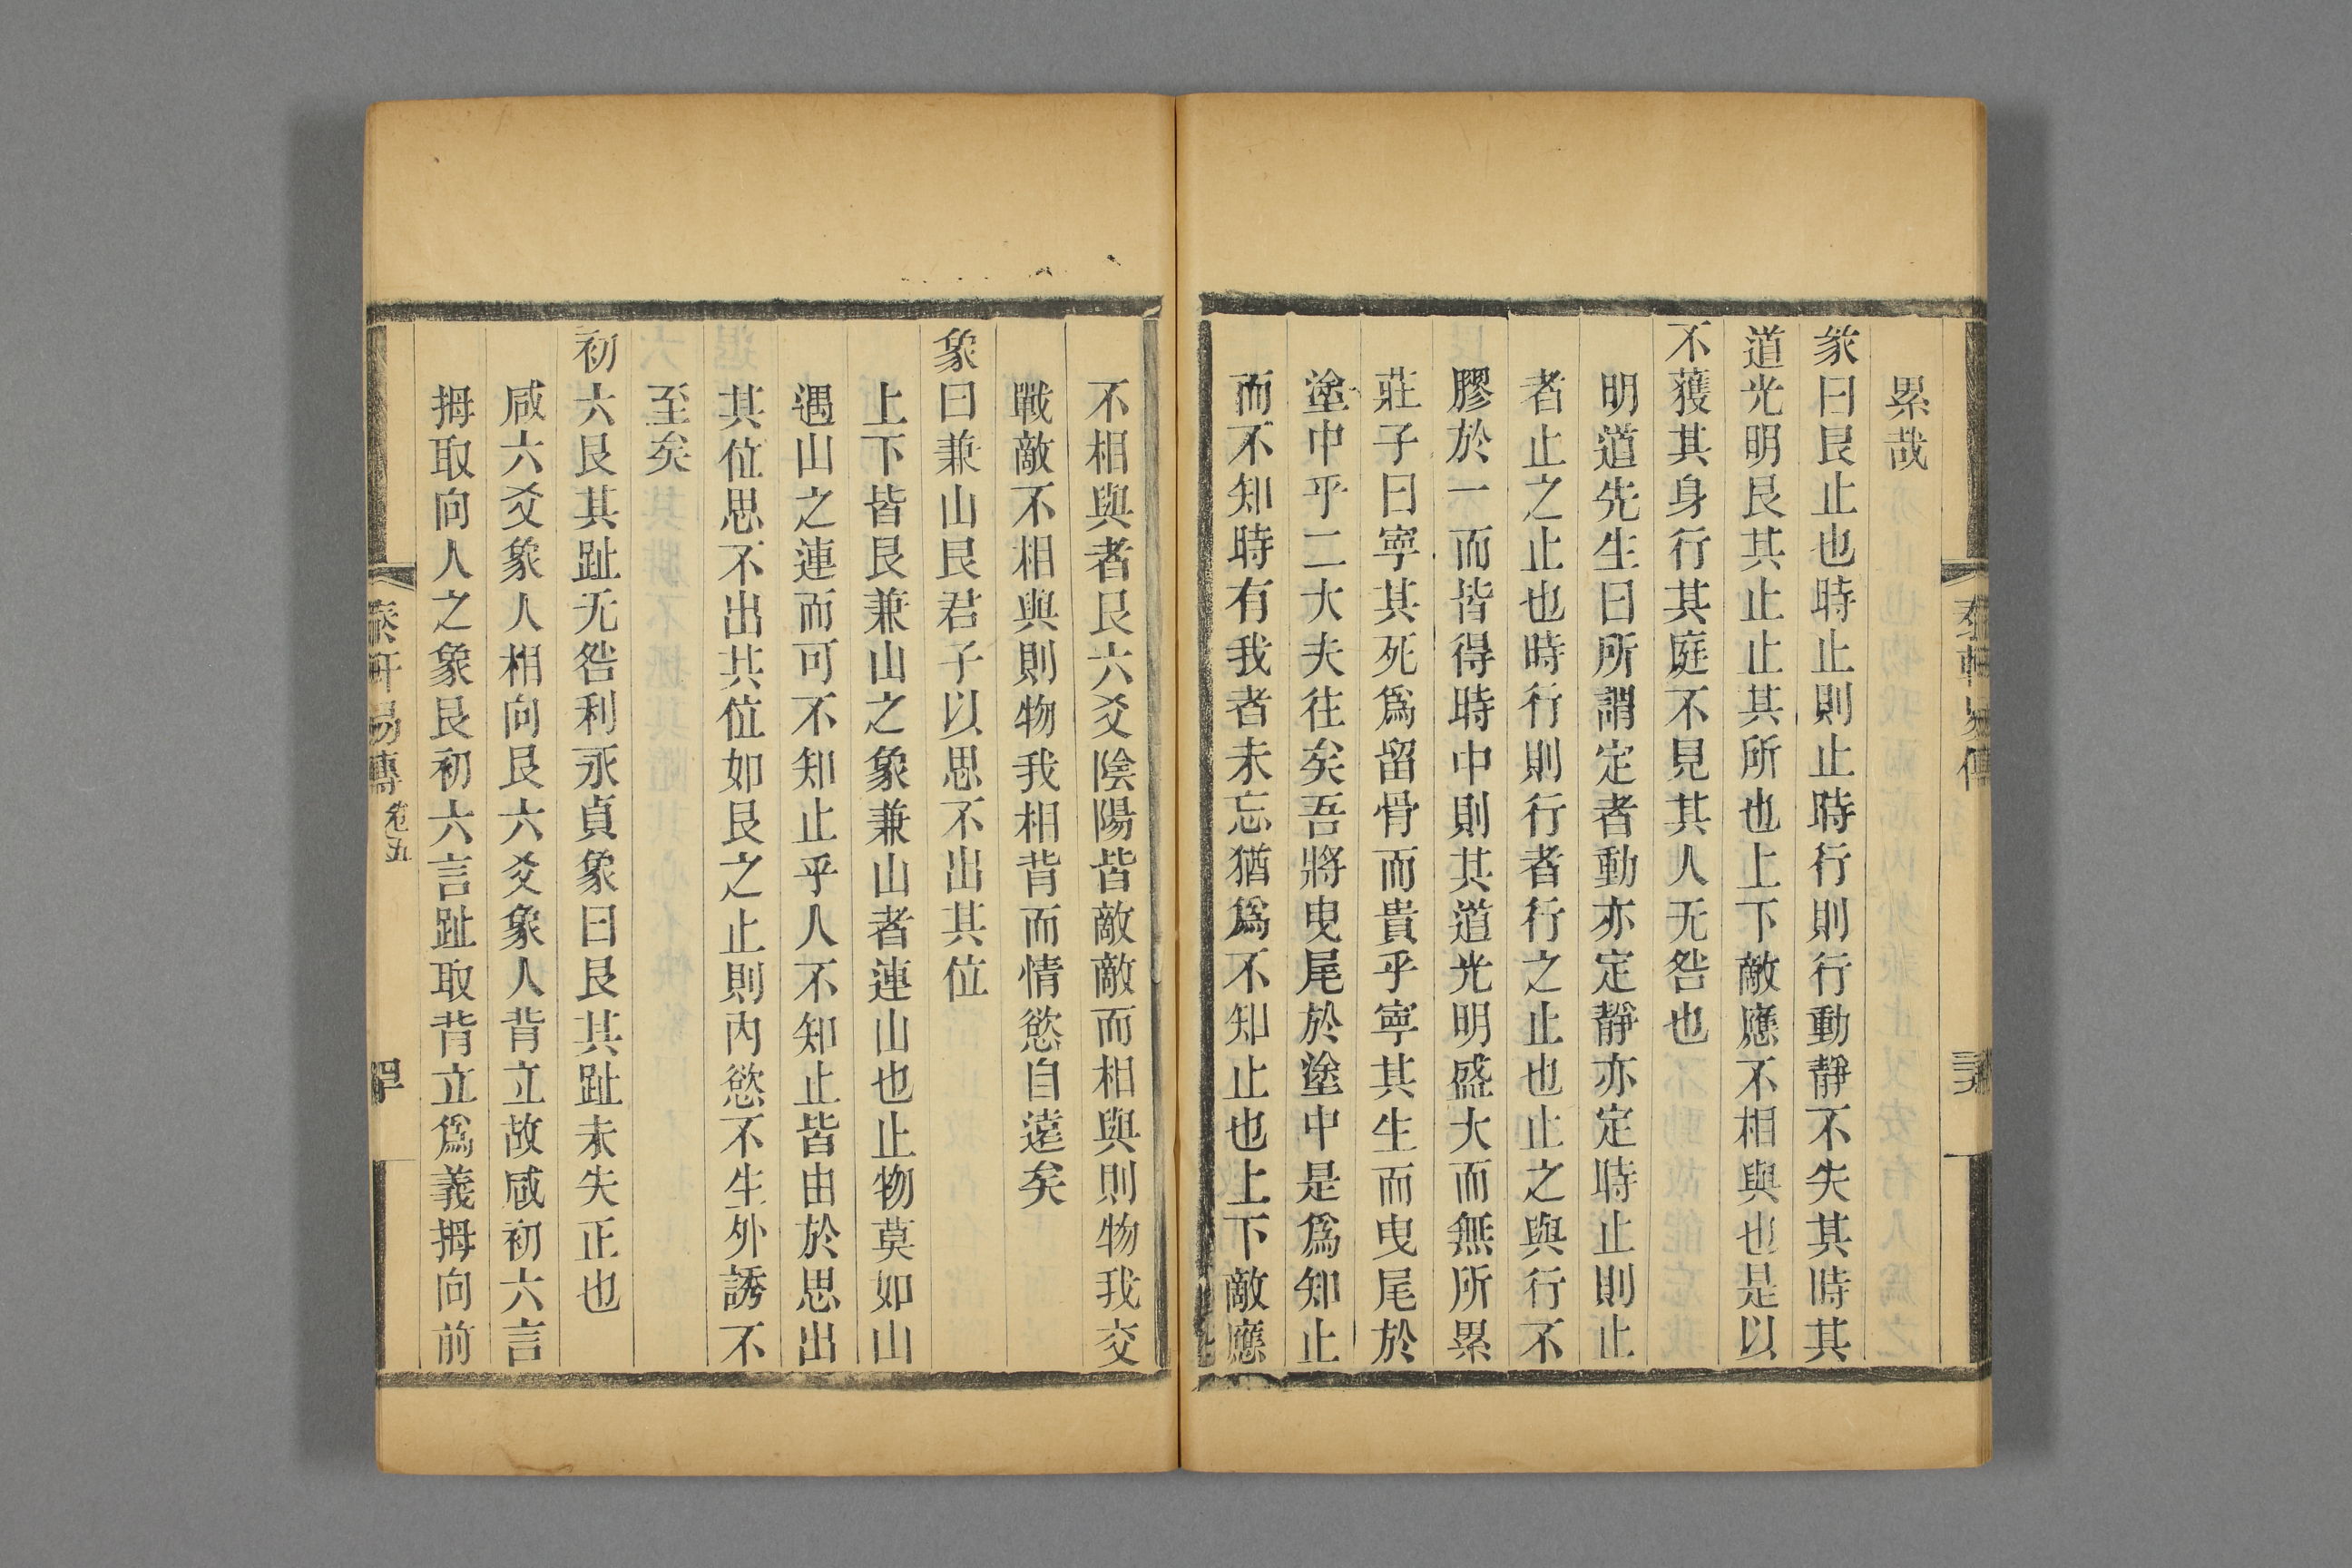 累哉
彖曰艮止也時止則止時行則行動靜不失其時其
道光明艮其止止其所也上下敵應不相與也是以
不獲其身行其庭不見其人无咎也
明道先生曰所謂定者動亦定靜亦定時止則止
者止之止也時行則行者行之止也止之與行不
膠於一而皆得時中則其道光明盛大而無所累
莊子曰寧其死爲留骨而貴乎寧其生而曳尾於
塗中乎二大夫往矣吾將曳尾於塗中是爲知止
而不知時有我者未忘猶爲不知止也上下敵應
不相與者艮六爻陰陽皆敵敵而相與則物我交
戰敵不相與則物我相背而情慾自遠矣
象曰兼山艮君子以思不出其位
上下皆艮兼山之象兼山者連山也止物莫如山
遇山之連而可不知止乎人不知止皆由於思出
其位思不出其位如艮之止則內慾不生外誘不
至矣
初六艮其趾无咎利永貞象曰艮其趾未失正也
咸六爻象人相向艮六爻象人背立故咸初六言
拇取向人之象艮初六言趾取背立爲義拇向前
易傳 卷五